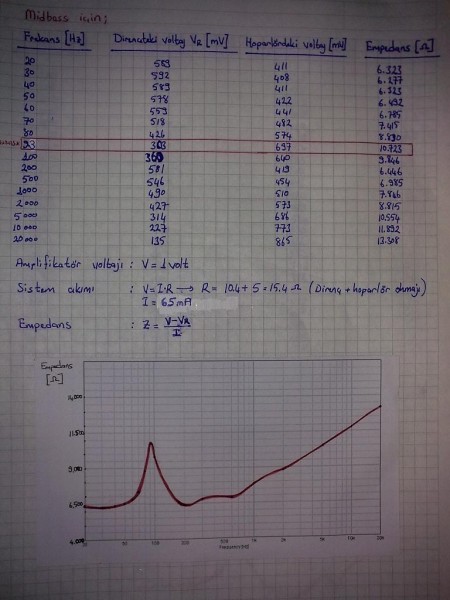 Midbass için;
Frekans [Hz] Dirençteki voltaj VR [mV] Hoparlördeki voltaj [mV] Empedans [Ω]
20 589 411 6.323
30 592 408 6.277
40 589 411 6.323
50 578 422 6.492
60 559 441 6.785
70 518 482 7.415
80 426 574 8.830
93 303 697 10.723
100 360 640 9.846
200 581 419 6.446
500 546 454 6.985
1000 490 510 7.846
2000 427 573 8.815
5000 314 686 10.554
10000 227 773 11.892
20000 135 865 13.308
Amplifikatör voltajı : V = 1 volt
Sistem akımı : V=I.R → R = 10.4 + 5 = 15.4 Ω (Direnç + hoparlör ohmajı)
I = 65 mA
Empedans : Z = V-VR / I
Empedans
[Ω]
14,000
11,500
9,000
6,500
4,000
20 50 100 200 500 1K 2K 5K 10K 20K
Frequency [Hz]